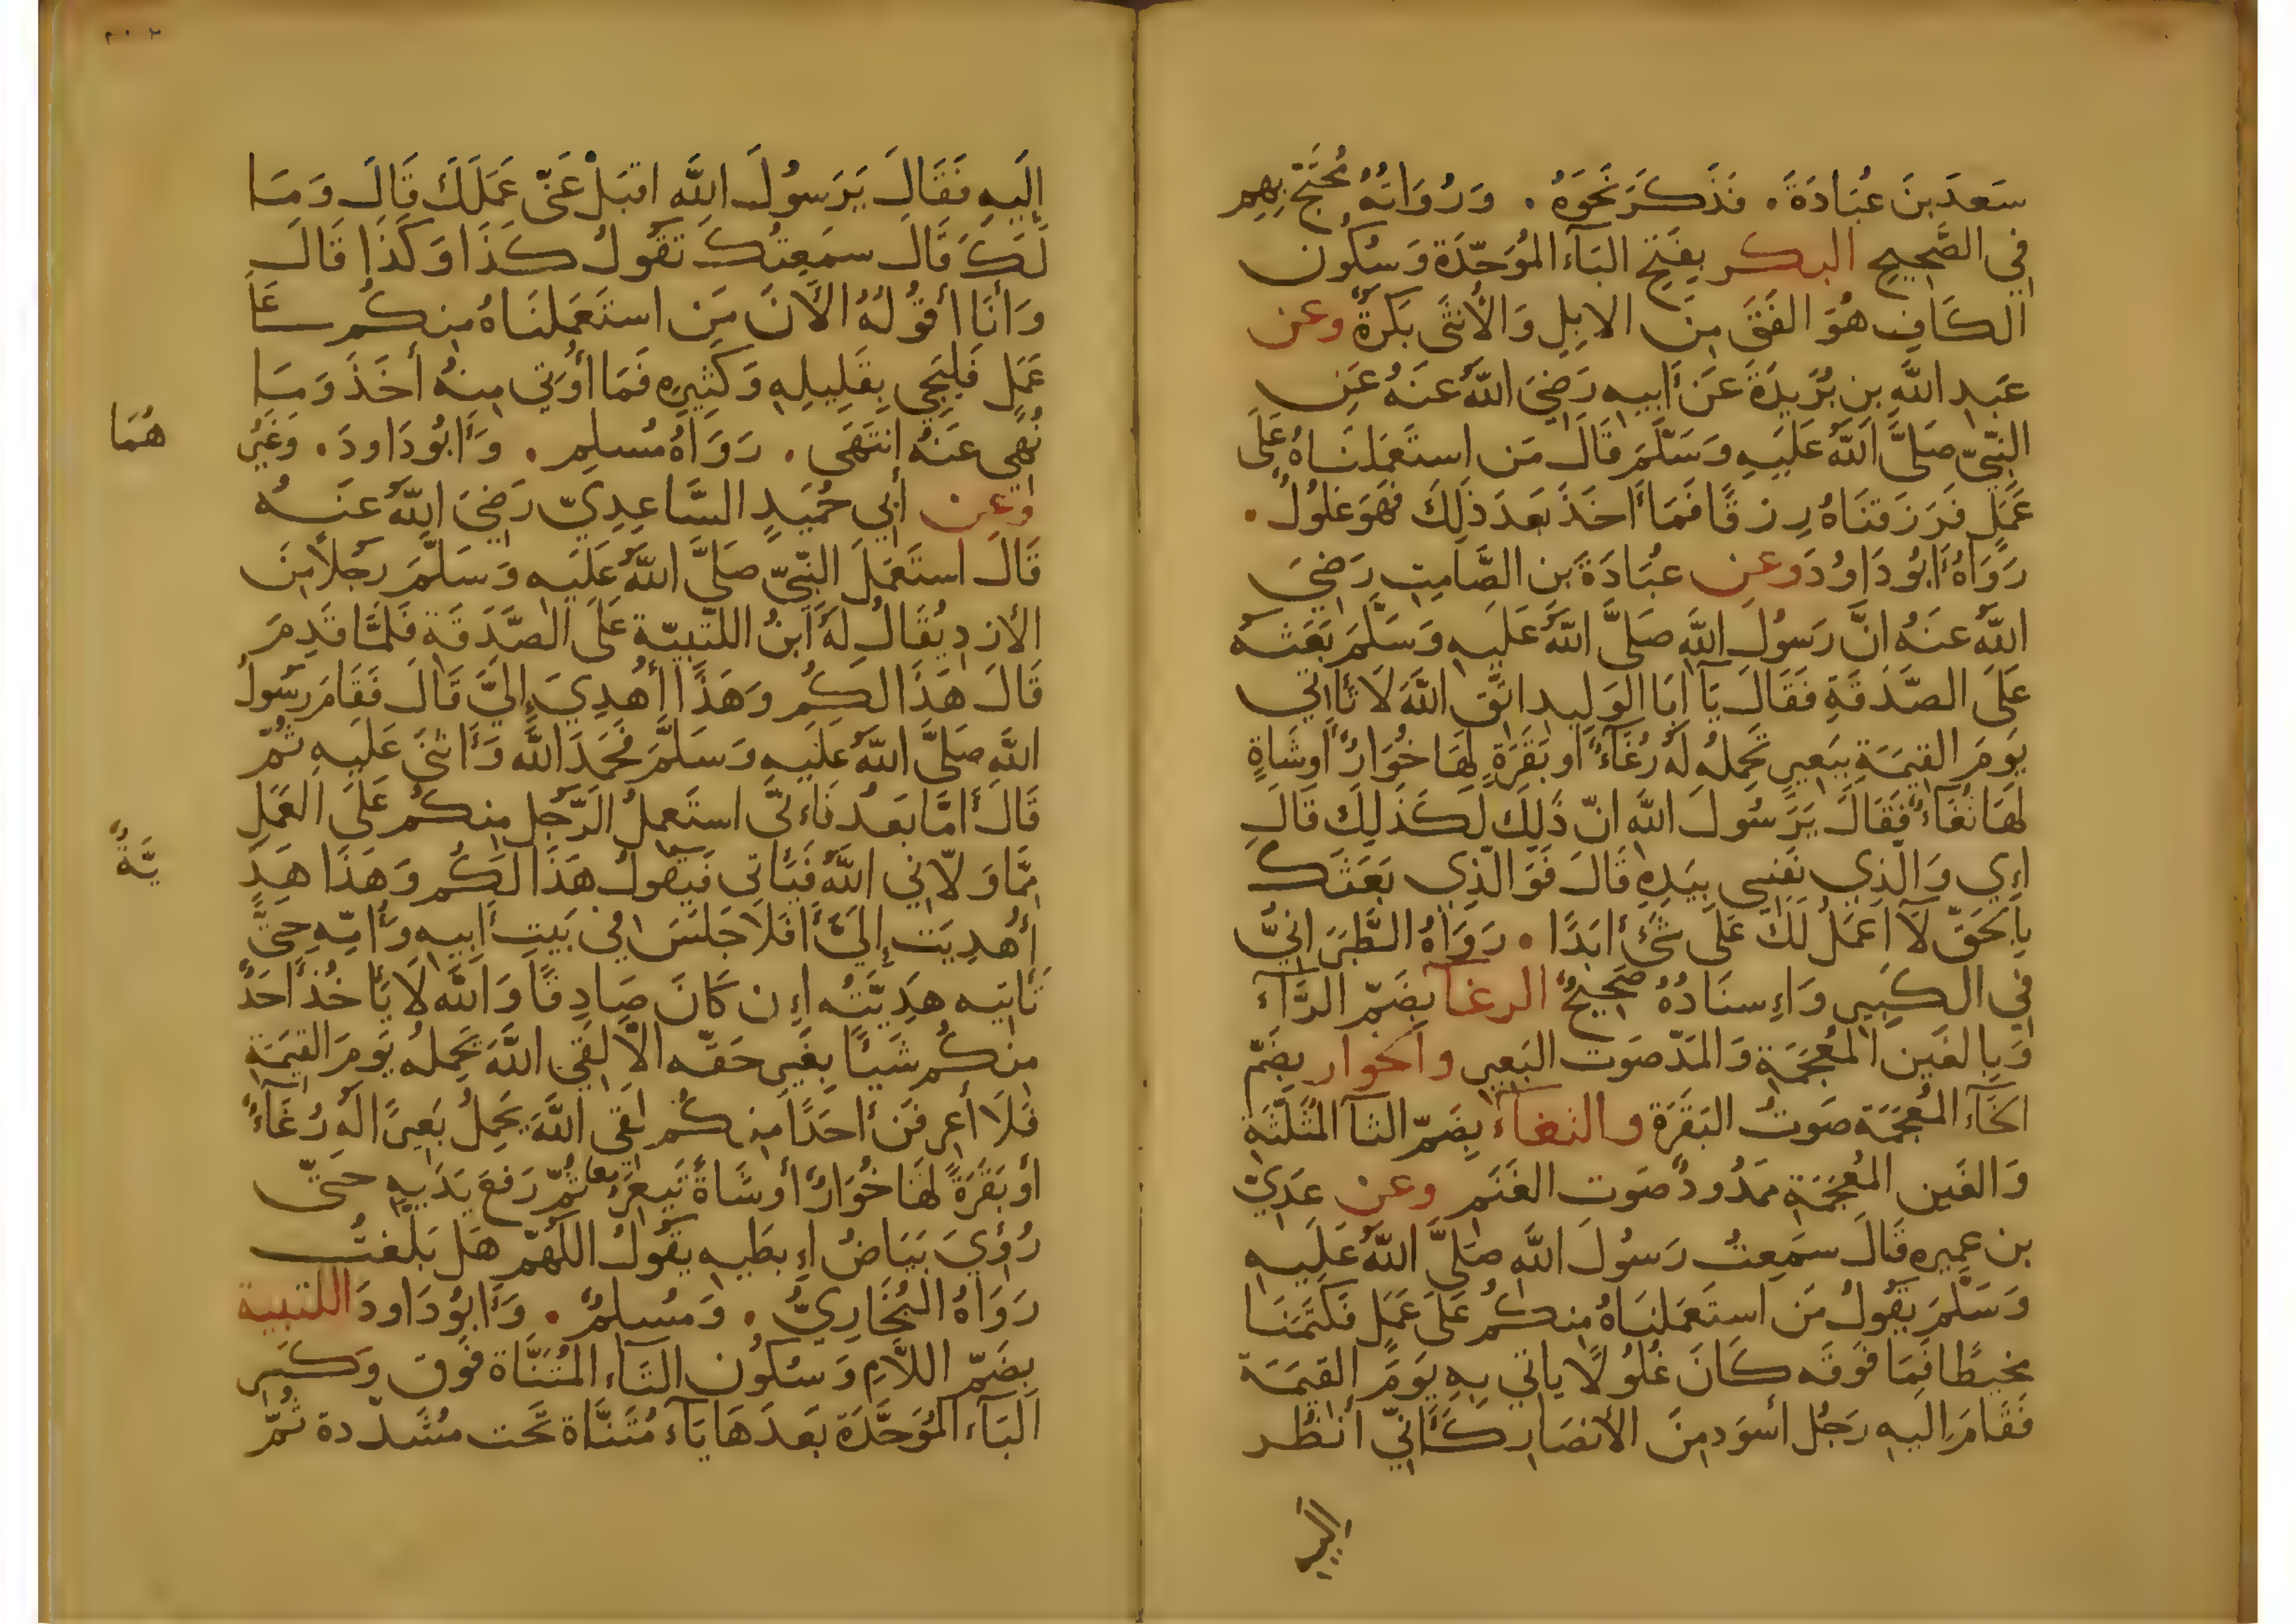 سَعدَ بنَ عُبَادَةَ . فَذَكَرَ نَحَوَهُ . وَرُوَاتُهُ مُحتَجّ بِهِم
فِي الصَّحِيحِ البكر بِفَتحِ البَآءِ المُوَحّدَة وَسُكُون
الكَافِ هُوَ الفَتَى مِنَ الاِبِلِ وَالأُنثَى بَكرَةٌ وعن
عَبدِ اللَّهِ بنِ بُرَيدَةَ عَن أَبِيهِ رَضِيَ اللَّهُ عَنهُ عَنِ
النَّبِيّ صَلَّى اللَّهُ عَلَيهِ وَسَلَّمَ قَالَ مَن استَعمَلنَاهُ عَلَى
عَمَلٍ فَرَزَقنَاهُ رِزقًا فَمَا أَخَذَ بَعدَ ذَلِكَ فَهُوَ غُلُولٌ .
رَوَاهُ أَبُو دَاوُدَ وعن عُبَادَةَ بنِ الصَّامِتِ رَضِيَ
اللَّهُ عَنهُ انَّ رَسُولَ اللَّهِ صَلَّى اللَّهُ عَلَيهِ وَسَلَّمَ بَعَثَهُ
عَلَى الصَّدَقَةِ فَقَالَ يَآ أبَا الوَلِيدِ اتَّقِ اللَّهَ لَا تَأتِي
يَومَ القِيمَةِ بِبَعِيرٍ تَحمِلُهُ لَهُ رُغَآءٌ أو بَقَرَةٍ لَهَا خُوَارٌ أوشَاةٍ
لَهَا ثُغَاءٌ فَقَالَ يَرَسُولَ اللَّهِ انّ ذَلِكَ لَكَذَلِكَ قَالَ
اِي وَالَّذِي نَفسِي بِيَدِهِ قَالَ فَوَالَّذِي بَعَثَكَ
بِالحَقّ لَآ أعمَلُ لَكَ عَلَى شَيٍ أبَدًا . رَوَاهُ الطَّبَرَانِيُّ
فِي الكَبِيرِ وَاِسنَادُهُ صَحِيحٌ الرغآ بِضَمّ الرَّآءِ
وَبِالغَينِ المُعجَمَةِ وَالمَدّ صَوت البَعِيرِ والخوار بِضَمّ
الخَآءِ المُعجَمَة صَوتُ البَقَرَة والثغآء بِضَمّ الثآ المُثَلَّثَةِ
وَالغَينِ المُعجَمَةِ مَمدُودٌ صَوت الغَنَمِ وعن عَدِيّ
بن عمِيره قَالَ سَمِعتُ رَسُولَ اللَّهِ صَلَّى اللَّهُ عَلَيهِ
وَسَلَّمَ يَقُولُ مَن استَعمَلنَاهُ مِنكُم عَلَى عَمَلٍ فَكَتَمَنَا
مخيَطًا فَمَا فَوقَه كَانَ غُلُولًا ياتي بِهِ يَومَ القِيمَة
فَقَامَ اِلَيهِ رَجُل أسوَد مِنَ الأنصَارِ كَأَنِّي أنظُر
اليه
إلَيهِ فَقَالَ يَرَسُولَ اللَّهِ اقبَل عَنّي عَمَلَكَ قَالَ وَمَا
لَكَ قَالَ سَمِعتُكَ تَقُولُ كَذَا وَكَذَا قَالَ
وَأَنَا أَقُولُهُ الأَنَ مَنِ استَعمَلنَاهُ مِنكُم عَلَى
عَمَلٍ فَليَجِي بِقَلِيلِهِ وَكَثِيرِهِ فَمَا أُوتِي مِنهُ أَخَذَ وَمَا
نُهِي عَنهُ انتَهَى . رَوَاهُ مُسلِم . وَأَبُو دَاودَ . وَغَيرُ
هُمَا
وعن أَبِي حُمَيدٍ السَّاعِدِيّ رَضِيَ اللَّهُ عَنهُ
قَالَ استَعمَلَ النَّبِيّ صَلَّى اللَّهُ عَلَيهِ وَسَلَّمَ رَجُلاً مِنَ
الأزدِ يُقَالُ لَهُ ابنُ اللتبِيّة عَلَى الصَّدَقَةِ فَلَمَّا قَدِمَ
قَالَ هَذَا لَكُم وَهَذَا أُهدِيَ إِلَيَّ قَالَ فَقَامَ رَسُولُ
اللَّهِ صَلَّى اللَّهُ عَلَيهِ وَسَلَّمَ فَحَمَدَ اللَّهَ وَأَثنَى عَلَيهِ ثُمّ
قَالَ أمَّا بَعدُ فَاءِنّي استَعمِلُ الرّجُلَ مِنكُم عَلَى العَمَلِ
مِمَّا وَلّانِي اللَّهُ فَيَأتِي فَيَقُولُ هَذَا لَكُم وَهَذَا هَدِ
يَّةٌ
أُهدِيَت إِلَيَّ أَفَلا جَلَسَ فِي بَيتِ أَبِيهِ وَأُمّهِ حَتَّى
تَاتِيه هَدِيَّتُه اِن كَانَ صَادِقًا وَاللَّهِ لَا يَأخُذُ أَحَدٌ
مِنكُم شَيئًا بِغَيرِ حَقّه الّا لَقِيَ اللَّهَ يَحمِلهُ يَومَ القِيمَةِ
فَلَا أَعرِفَنّ أحَدًا مِنكُم لَقِيَ اللَّهَ يَحمِلُ بَعِيرًا لَهُ رُغَآءٌ
أَو بَقَرَةً لَهَا خُوَارٌ أَو شَاةً تَيعَرُ ثُمّ رَفَعَ يَدَيهِ حَتّى
رُؤِيَ بَيَاضُ اِبِطَيهِ يَقُولُ اللّهُمّ هَل بَلّغتُ
رَوَاهُ البُخَارِيُّ . وَمُسلِمٌ . وَأَبُو دَاودَ اللتبية
بِضَمّ اللَّامِ وَسُكُون التَاءِ المُثَنَّاة فَوق وَكَسرِ
البَآءِ المُوَحَّدَة بَعدَهَا يَآء مُثَنَّاة تَحت مشَدّدة ثُمّ